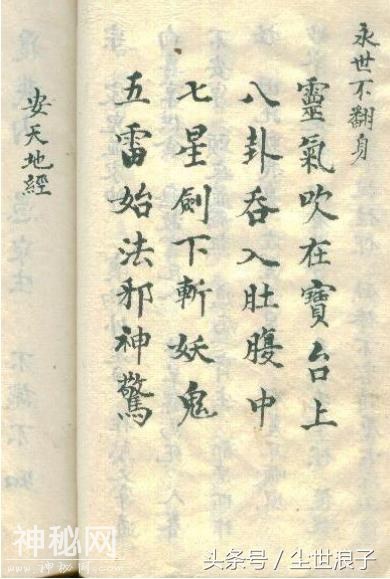 永世不翻身
靈氣吹在寶台上
八卦吞入肚腹中
七星劍下斬妖鬼
五雷始法邪神驚
安天地經
神秘网
头条号/尘世浪子